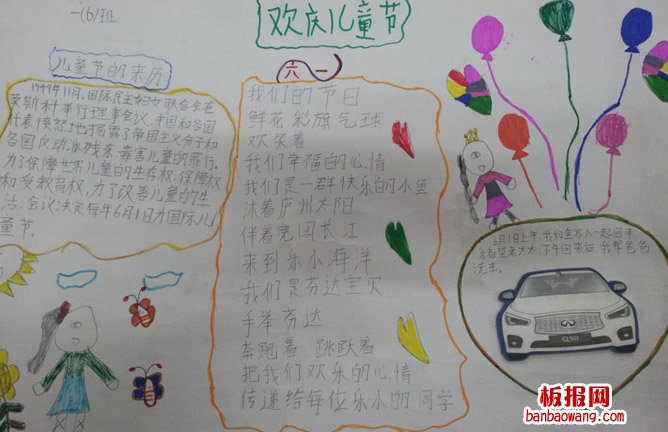 一(6)班
欢庆儿童节
儿童节的来历
1949年11月,国际民主妇女联合会在
莫斯科举行理事会议,中国和各国
代表愤怒地揭露了帝国主义分子和
各国反动派残杀、毒害儿童的罪行。
为了保障世界儿童的生存权、保障权
和受教育权,为了改善儿童的生
活,会议决定每年6月1日为国际儿
童节。
六一
我们的节日
鲜花 彩旗 气球
欢笑着
我们幸福的心情
我们是一群快乐的小鱼
沐着庐州太阳
伴着 长江
来到乐小海洋
我们是芬达主
手举芬达
奔跑着 跳跃着
把我们欢乐的心情
传递给每位乐小的同学
6月1日上午,我和家人一起回
看望老太太,下午回来后,我帮爸爸
洗车。
Q50
板报网
banbaowang.com